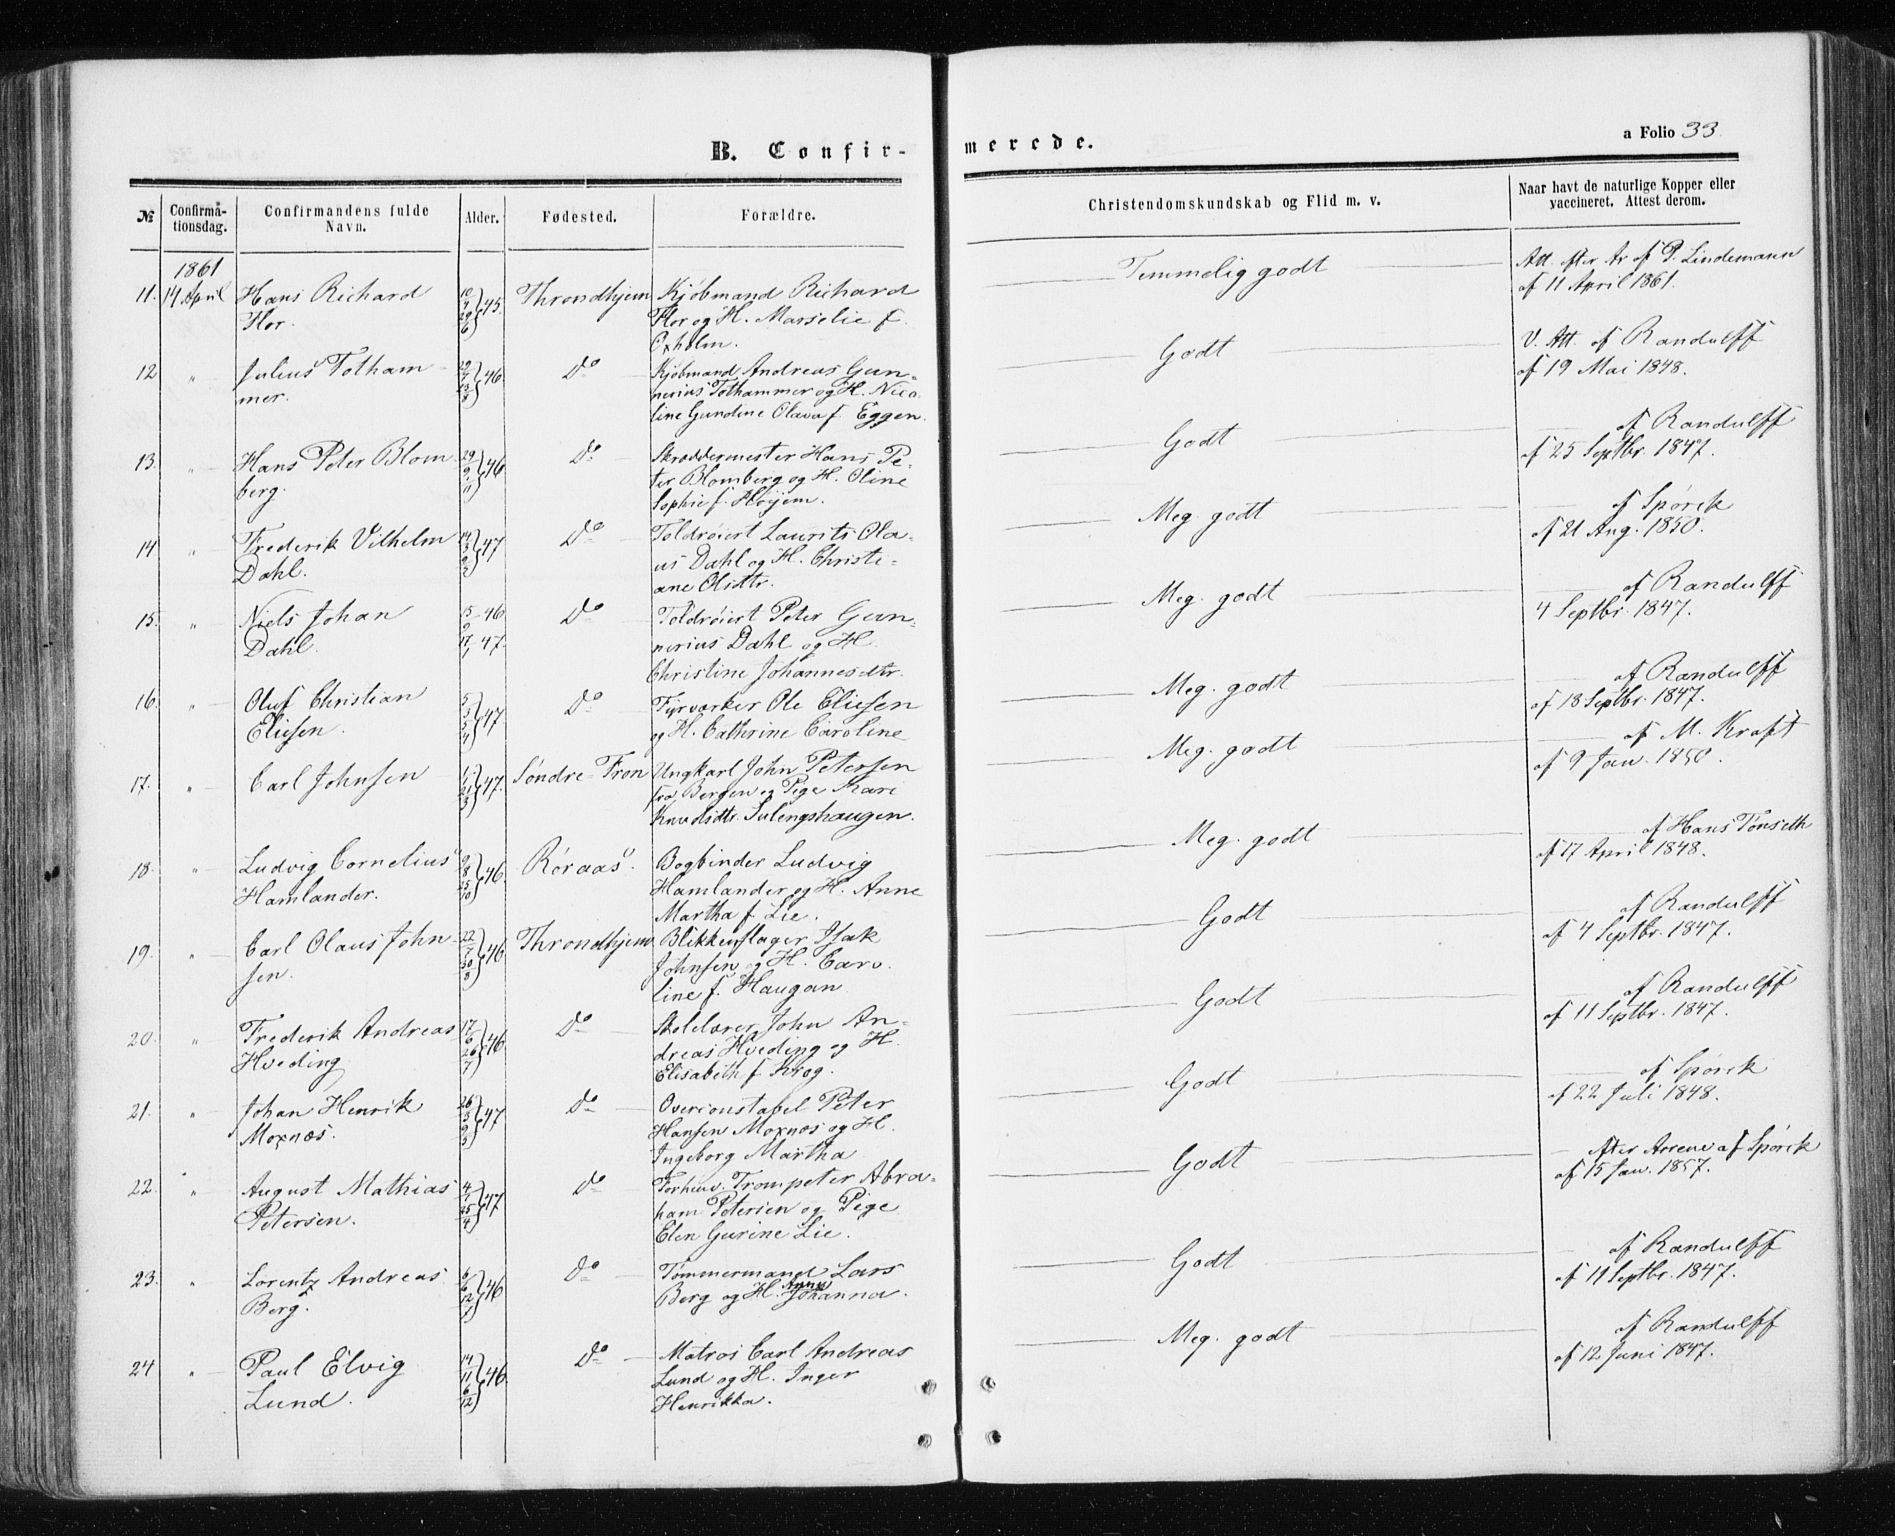 B. Confirmerede.
a Folio 33
№ Confirmationsdag. Confirmandens fulde Navn. Alder. Fødested. Forældre. Christendomskundskab og Flid m. v. Naar havt de naturlige Kopper eller vaccineret. Attest derom.
1861
11. 14 April Hans Richard 45 Throndhjem Kjøbmand Richard Temmelig godt Att. efter Ar af P. Lindemann
Flor. Flor og H. Marselie f. af 11 April 1861.
Oxholm.
12 " Julius Totham- 46 Do Kjøbmand Andreas Gun- Godt V. Att. af Randulff
mer. nerius Tothammer og H. Nico- af 19 Mai 1848.
line Gundine Olava f. Eggen.
13. " Hans Peter Blom 29/9 11 46 Do Skræddermester Hans Pe- Godt af Randulff
berg. ter Blomberg og H. Oline af 25 Septbr. 1847.
Sophie f. Høyem.
14 " Frederik Vilhelm 47 Do Toldroiert Laurits Ola- Meg. godt af Spørck
Dahl. us Dahl og H. Christi- af 21 Aug. 1850.
ane Olsdtr.
15. " Niels Johan 15/9 46 Do Toldroiert Peter Gun- Meg. godt af Randulff
Dahl. 17/1 47. nerius Dahl og H. 4 Septbr. 1847.
Christine Johannesdtr.
16. " Oluf Christian 47 Do Fyrværker Ole Eliesen Meg. godt af Randulff
Eliesen. og H. Cathrine Caroline af 18 Septbr. 1847.
17. " Carl Johnsen 47. Søndre-Fron Ungkarl John Petersen Meg. godt af M. Kraft
fra Bergen og Pige Kari af 9 Jan. 1850.
Knudsdtr. Sulengshaugen.
18. " Ludvig Cornelius 9/8 25/10 46. Røraas. Bogbinder Ludvig Meg. godt af Hans Tønseth
Hamlander. Hamlander og H. Anne af 17 April 1848.
Martha f. Lie.
19. " Carl Olaus John- 22/7 30/8 46 Throndhjem Blikkenslager Isak Godt af Randulff
sen. Johnsen og H. Caro- af 4 Septbr. 1847.
line f. Haugan
20. " Frederik Andreas 17/6 26/7 46. Do Skolelærer John An- Godt af Randulff
Hveding dreas Hveding og H. af 11 Septbr. 1847.
Elisabeth f. Krog.
21. " Johan Henrik 26/3 9/5 47 Do Overconstabel Peter Godt af Spørck
Moxnæs. Hansen Moxnæs og H. af 22 Juli 1848.
Ingeborg Martha
22. " August Mathias 4/1 25/4 47 Do Forhenv. Trompeter Abra- Godt Efter af Spørck
Petersen. ham Petersen og Pige af 15 Jan. 1857.
Elen Gurine Lie.
23. " Lorentz Andreas 6/6 12/7 46 Do Tømmermand Lars Godt af Randulff
Berg. Berg og H. Anne Johanna. af 11 Septbr. 1847.
24 " Paul Elvig 14/11 6/12 46. Do Matros Carl Andreas Meg. godt af Randulff
Lund. Lund og H. Inger af 12 Juni 1847.
Henrikka.